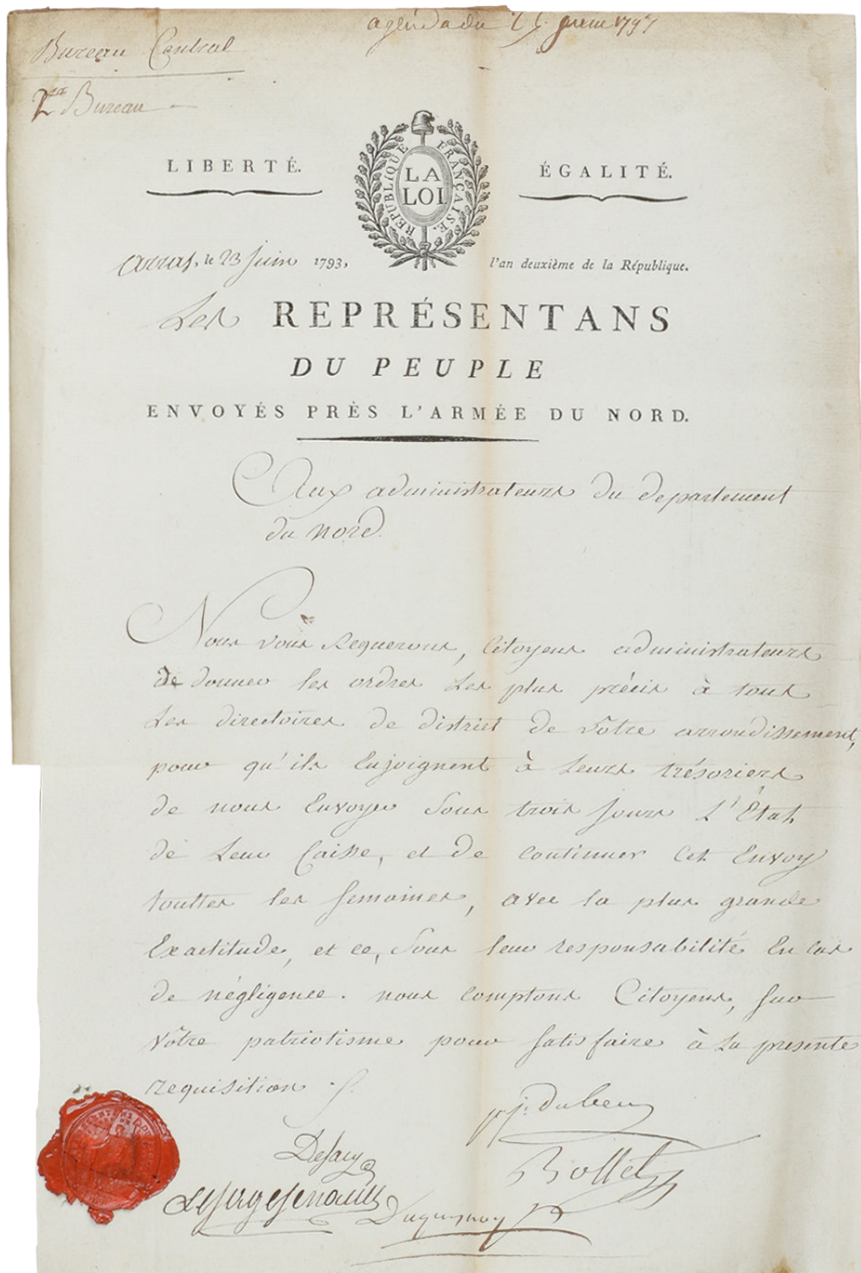 agenda du 25 juin 1793
Bureau Central
2me Bureau
LIBERTÉ.
RÉPUBLIQUE FRANÇAISE.
LA
LOI
ÉGALITÉ.
Arras, le 23 juin 1793,
l'an deuxième de la République.
Les REPRÉSENTANS
DU PEUPLE
ENVOYÉS PRÈS L'ARMÉE DU NORD.
Aux administrateurs du departement
du nord.
Nous vous Requerons, Citoyens administrateurs
de donner les ordres Les plus précis à tous
Les directoires de district de vôtre arrondissement,
pour qu'ils Enjoignent à Leurs trésoriers
de nous Envoyer Sous trois jours L'État
de Leur Caisse, et de continuer Cet Envoy
touttes les Semaines, avec la plus grande
Exactitude, et ce, Sous leur responsabilité En cas
de négligence. nous comptons Citoyens, sur
vôtre patriotisme pour satisfaire à La presente
requisition
Delacy
Bollet
Duquesnoy